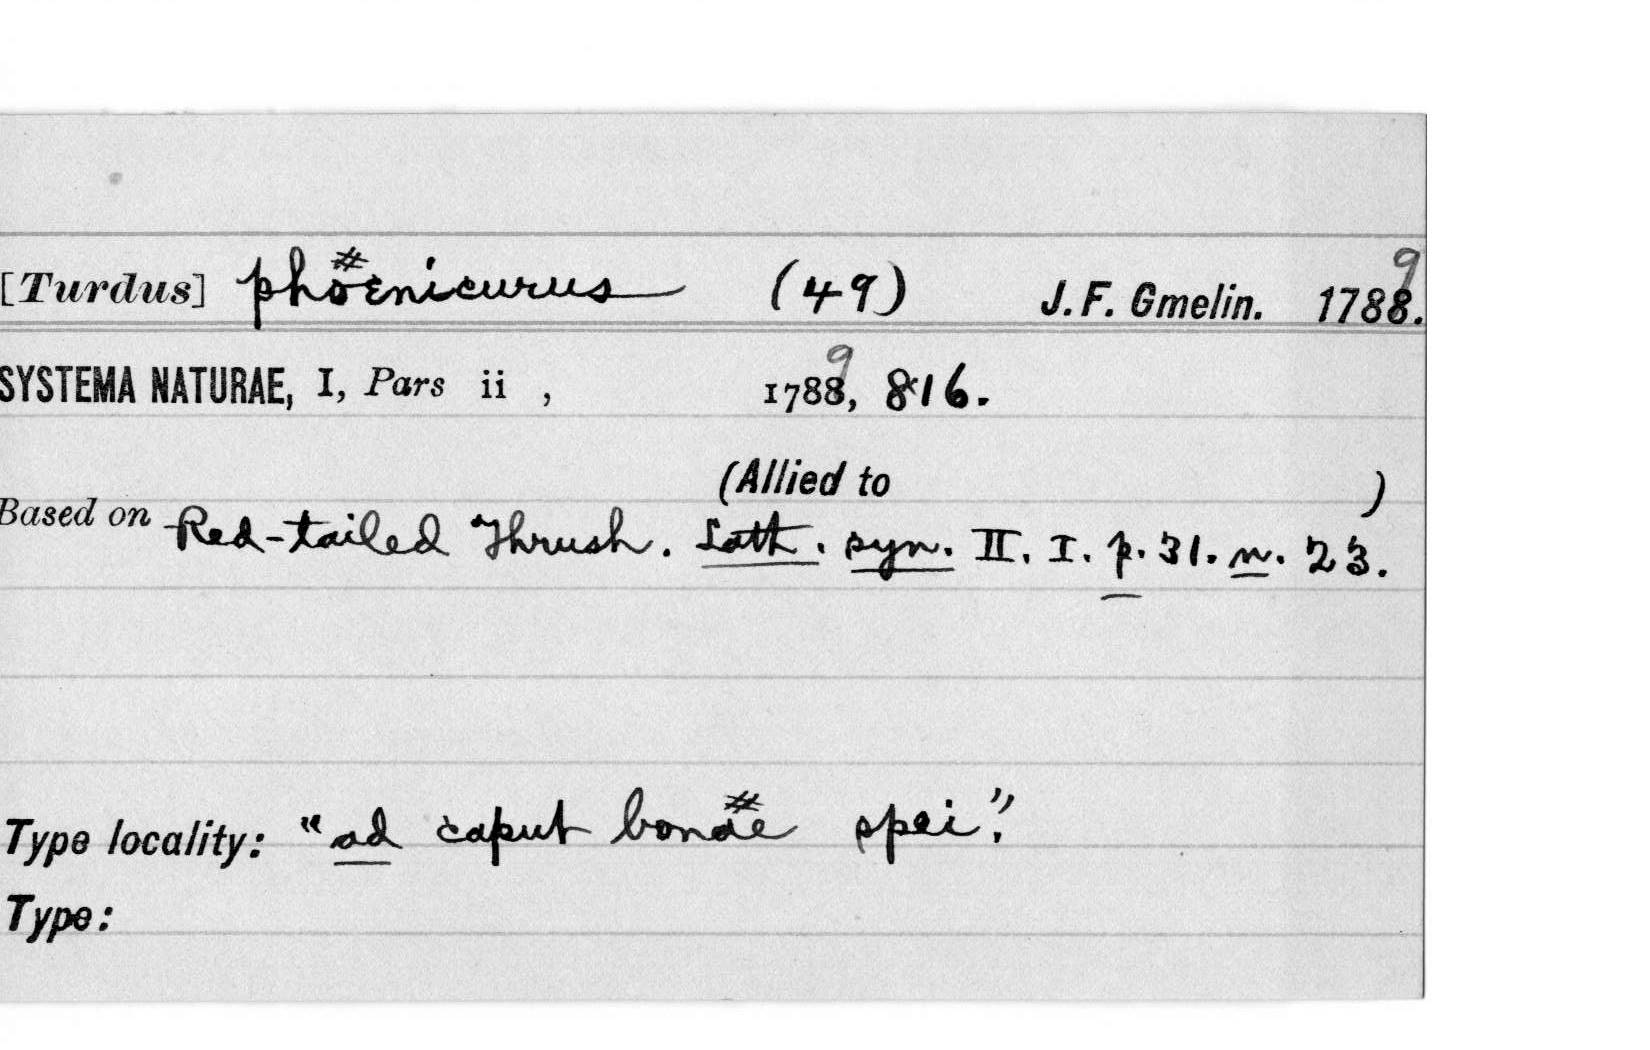 [Turdus] phœnicurus (49) J. F. Gmelin. 17889.
SYSTEMA NATURAE, I, Pars ii , 17889, 816.
(Allied to )
Based on Red-tailed Thrush. Lath. syn. II. I. p. 31. n. 23.
Type locality: "ad caput bonæ spei".
Type: